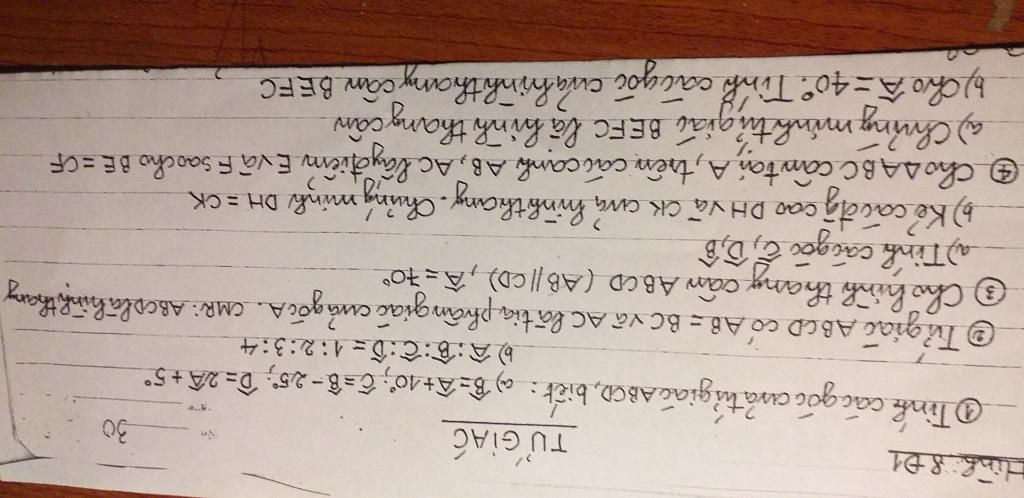 Hình: 8 Đ1
TỨ GIÁC
30
① Tính các góc của tứ giác ABCD, biết: a) B̂=Â+10°; Ĉ=B̂-25°; D̂=2Â+5°
b) Â:B̂:Ĉ:D̂=1:2:3:4
② Tứ giác ABCD có AB=BC và AC là tia phân giác của góc A. CMR: ABCD là hình thang
③ Cho hình thang cân ABCD (AB//CD), Â=70°
a) Tính các góc Ĉ, D̂, B̂
b) Kẻ các đg cao DH và CK của hình thang. Chứng minh DH=CK
④ Cho ΔABC cân tại A, trên các cạnh AB, AC lấy điểm E và F sao cho BE=CF
a) Chứng minh tứ giác BEFC là hình thang cân
b) Cho Â=40°. Tính các góc của hình thang cân BEFC